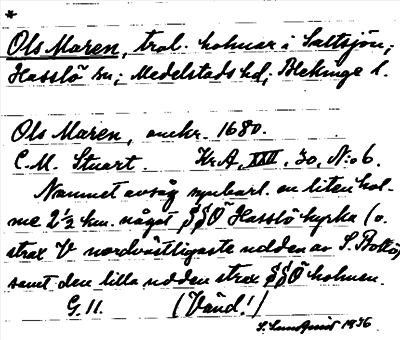 *
Ols Maren, trol. holmar i Saltsjön;
Hasslö sn; Medelstads hd, Blekinge l.
Ols Maren, omkr. 1680.
C. M. Stuart. Kr. A, XXII, 30, N:o 6.
Namnet avsåg synbarl. en liten hol-
me 2½ km. något §§Ö Hasslö kyrka (o.
strax V nordvästligaste udden av S. Bokö,
samt den lilla udden strax §§Ö holmen.
G. 11. (Vänd!)
S. Lundquist 1936